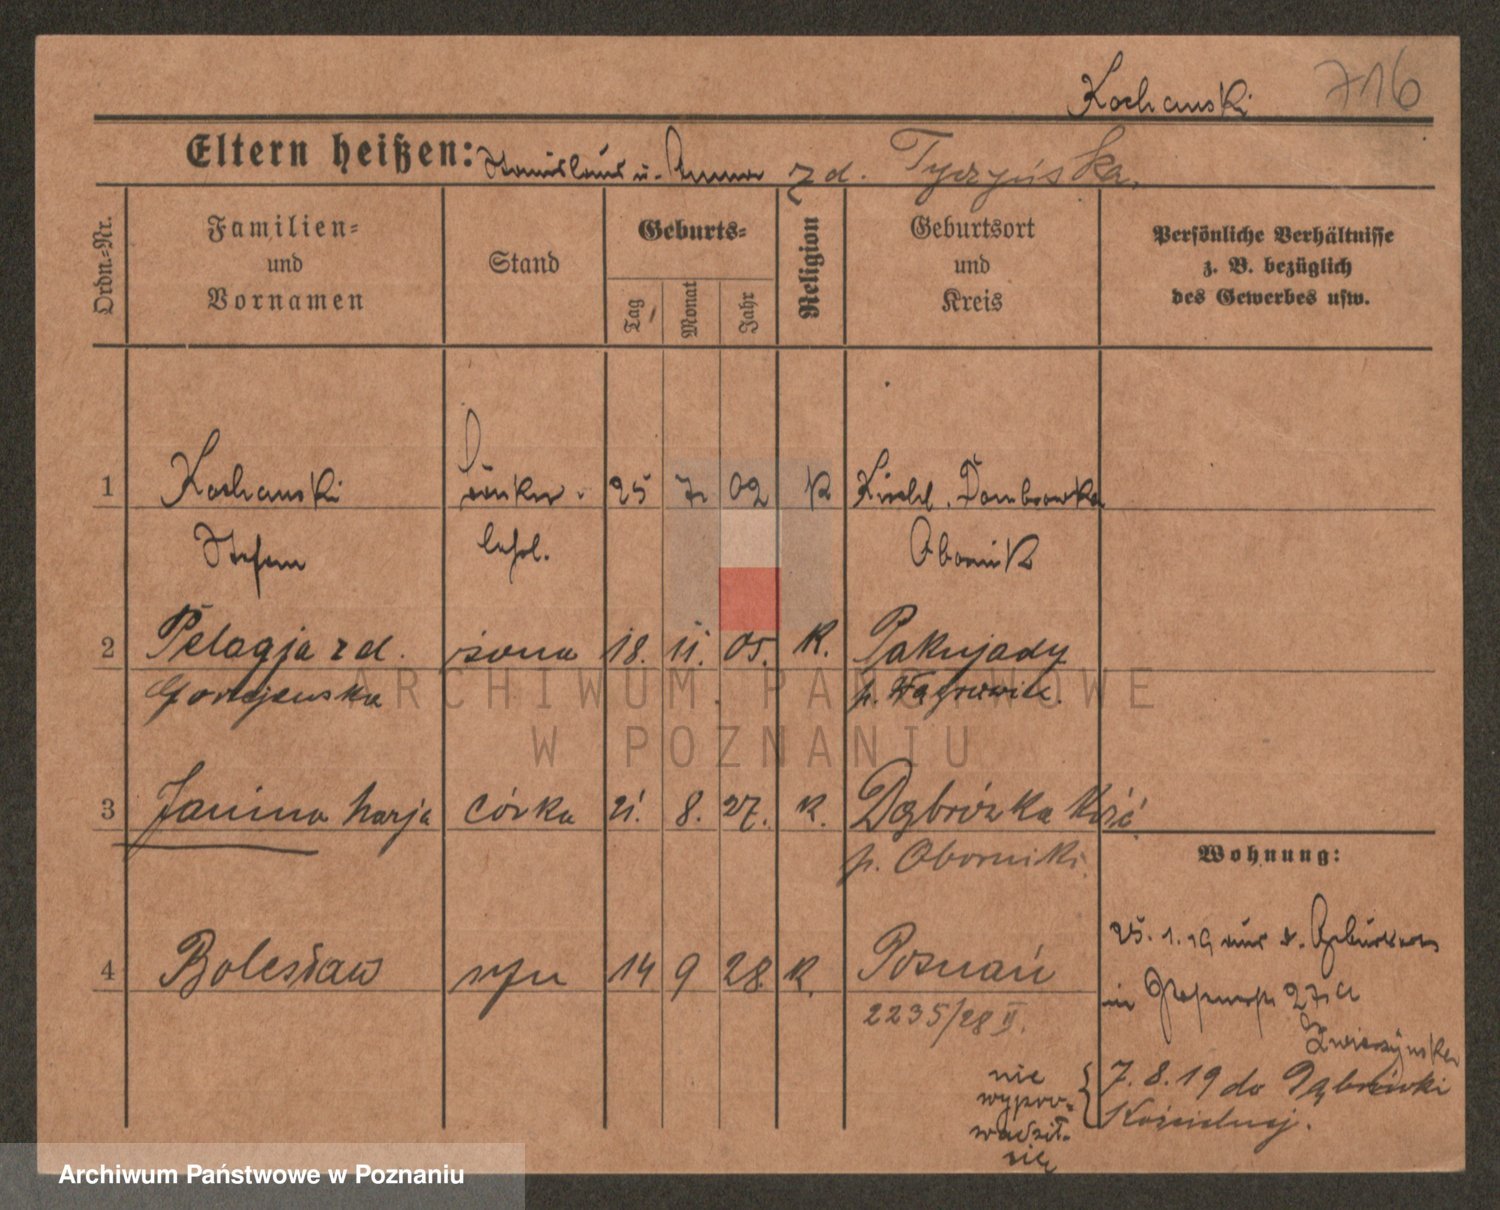 Kochanski 716
Eltern heißen: Stanislaus u. Anna z d. Tyczyńska.
Ordn.-Nr.
Familien- und Vornamen
Stand
Geburts-
Tag
Monat
Jahr
Religion
Geburtsort und Kreis
Persönliche Verhältnisse
z. B. bezüglich
des Gewerbes usw.
1 Kochanski 25 7. 02 K Kirchl. Dombrowka
Stefan lehrl. Obornik
2 Pelagja z d. żona 18. 11. 05. K. Pakujady
p. Wągrowitz.
3 Janina Marja córka 21. 8. 27. K. Dąbrówka Kość.
p. Oborniki.
Wohnung:
4 Bolesław syn 14 9 28. K. Poznań
25. 1. 19 aus
in 27a
2235/28 II.
7. 8. 19 do Dąbrówki
Kościelnej.
nie
wypro-
wadził
się
ARCHIWUM PAŃSTWOWE
W POZNANIU
Archiwum Państwowe w Poznaniu